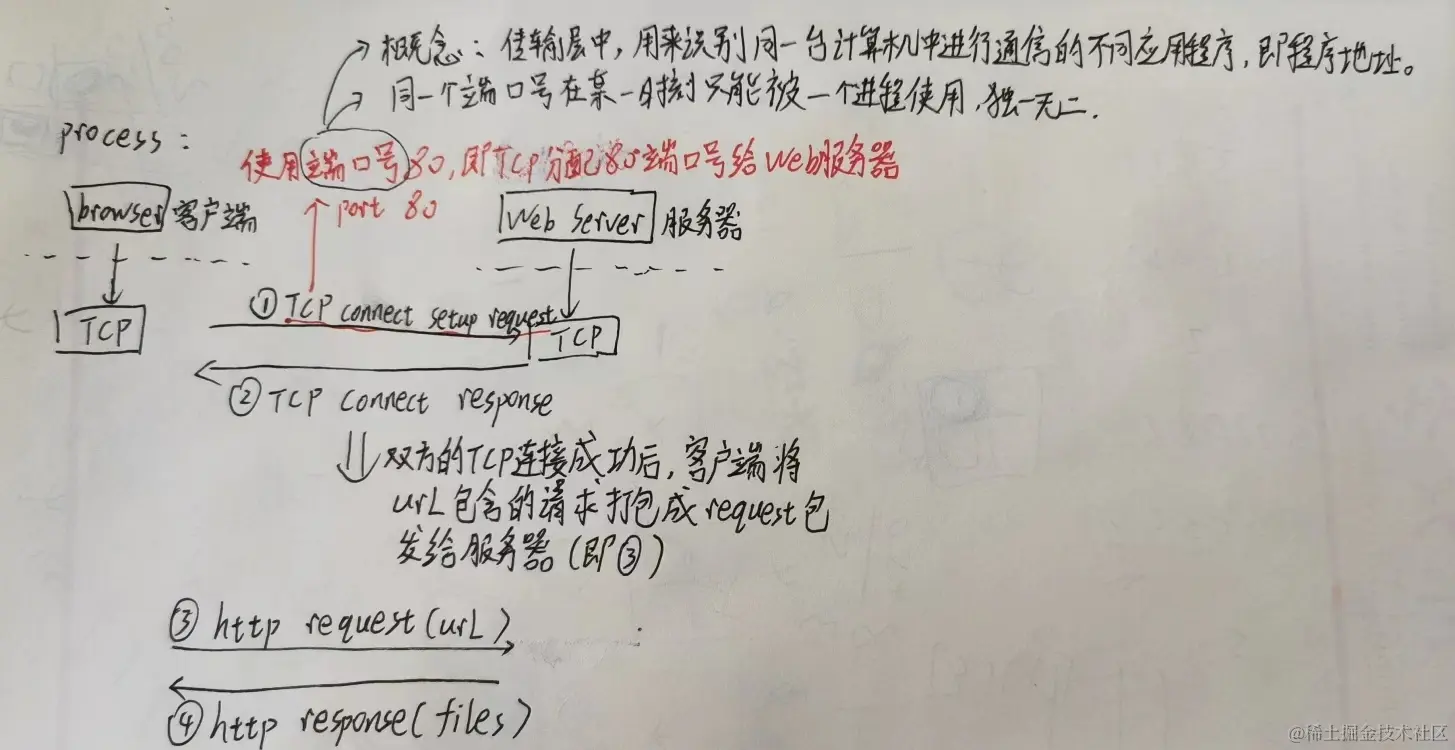 概念：传输层中，用来识别同一台计算机中进行通信的不同应用程序，即程序地址。
同一个端口号在某一时刻只能被一个进程使用，独一无二．
process：
使用端口号80，即TCP分配80端口号给Web服务器
port 80
browser 客户端
Web Server 服务器
① TCP connect setup request
TCP
TCP
② TCP connect response
双方的TCP连接成功后，客户端将
urL包含的请求打包成request包
发给服务器(即③)
③ http request(urL)
④ http response(files)
@稀土掘金技术社区